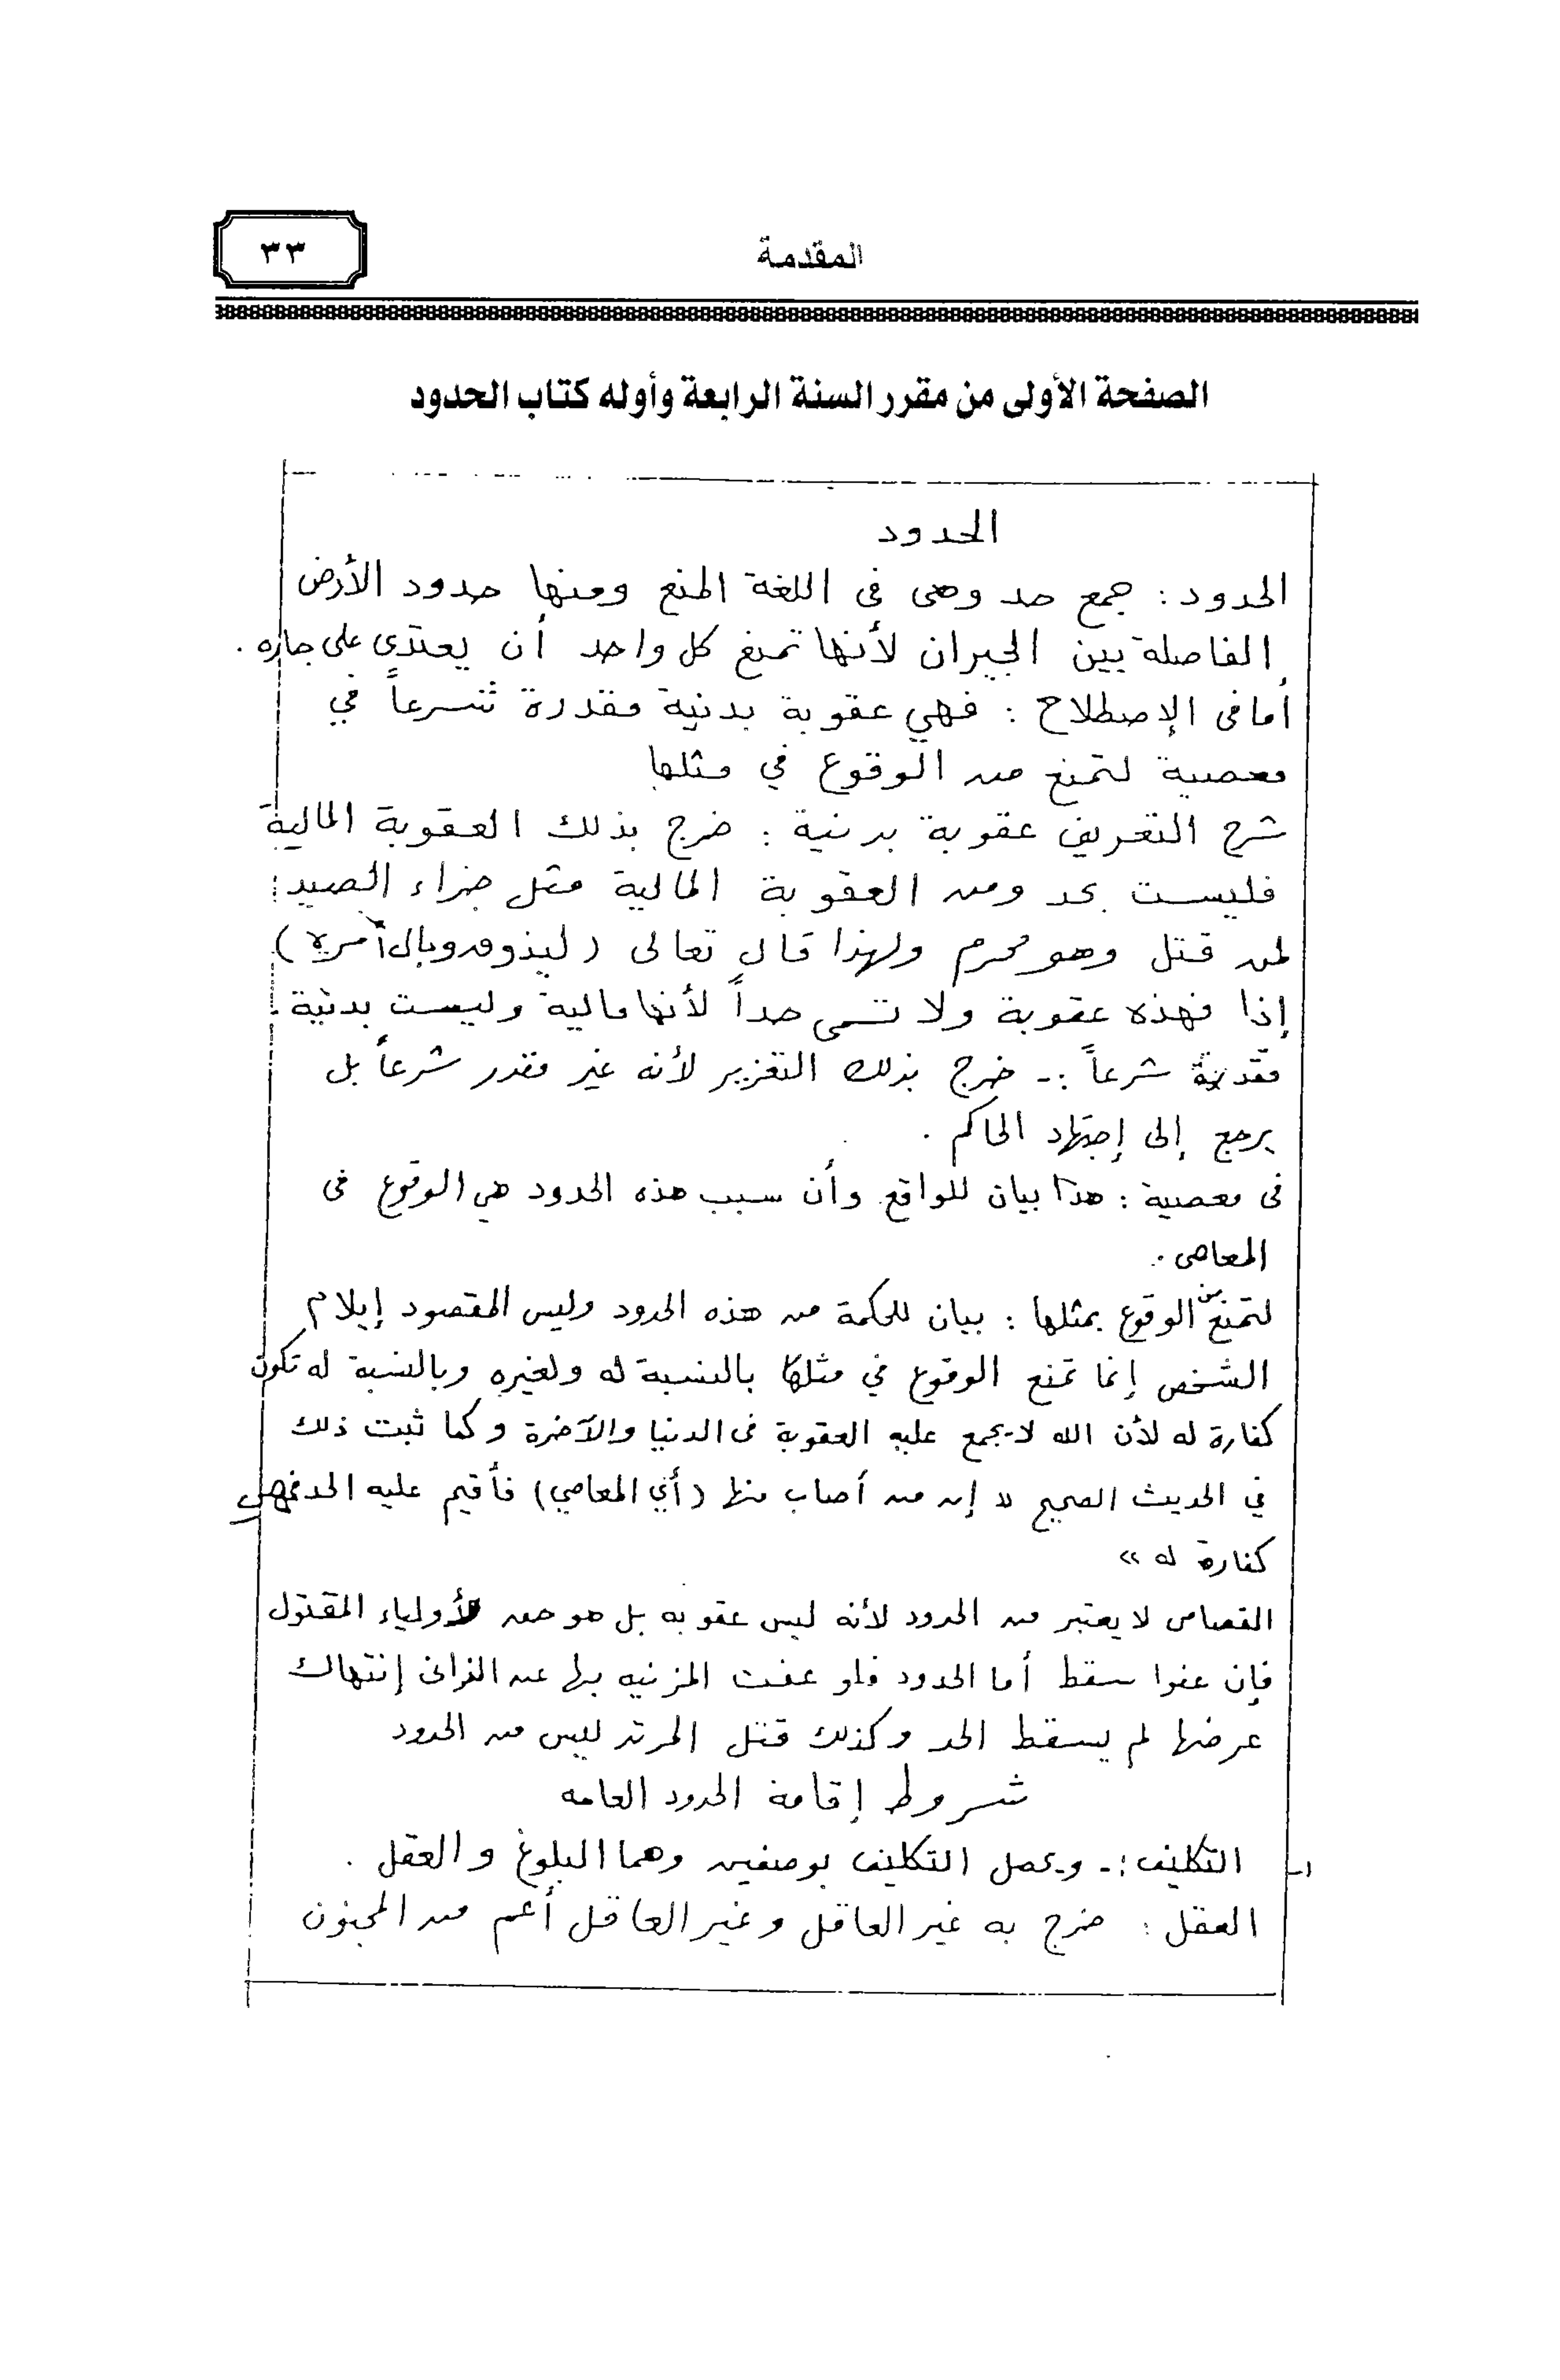 المقدمة
٣٣
الصفحة الأولى من مقرر السنة الرابعة وأوله كتاب الحدود
الحدود
الحدود : جمع حد وهى فى اللغة المنع ومنها حدود الأرض
الفاصلة بين الجيران لأنها تمنع كل واحد أن يعتدى على جاره .
أما فى الإصطلاح : فهي عقوبة بدنية مقدرة شرعاً في
معصية لتمنع من الوقوع في مثلها
شرح التعريف عقوبة بدنية : خرج بذلك العقوبة المالية
فليست بحد ومن العقوبة المالية مثل جزاء الصيد :
لمن قتل وهو محرم ولهذا قال تعالى ( ليذوق وبال أمره )
إذا فهذه عقوبة ولا تسمى حداً لأنها مالية وليست بدنية .
مقدرة شرعاً :- خرج بذلك التعزير لأنه غير مقدر شرعاً بل
يرجع إلى إجتهاد الحاكم .
فى معصية : هذا بيان للواقع وأن سبب هذه الحدود هي الوقوع فى
المعاصى .
لتمنع من الوقوع بمثلها : بيان للحكمة من هذه الحدود وليس المقصود إيلام
الشخص إنما تمنع الوقوع في مثلها بالنسبة له ولغيره وبالنسبة له تكون
كفارة له لأن الله لا يجمع عليه العقوبة فى الدنيا والآخرة وكما ثبت ذلك
في الحديث الصحيح « إن من أصاب منها ( أي المعاصي ) فأقيم عليه الحد فهي
كفارة له »
القصاص لا يعتبر من الحدود لأنه ليس عقوبه بل هو حق لأولياء المقتول
فإن عفوا سقط أما الحدود فلو عفت المزنيه بها عن الزانى إنتهاك
عرضها لم يسقط الحد وكذلك قتل المرتد ليس من الحدود
شروط إقامة الحدود العامه
١- التكليف :- ويحصل التكليف بوصفين وهما البلوغ والعقل .
العقل : خرج به غير العاقل وغير العاقل أعم من المجنون